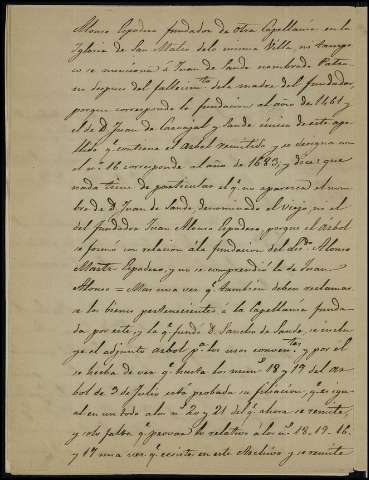 Alonso Espadero fundador de otra Capellanía en la
Iglesia de San Mateo dela misma Villa, ni tampo
co se menciona á Juan de Sande nombrado Patro
no despues del fallecim.to dela madre del fundador,
porque corresponde la fundacion al año de 1461 y
el de D. Juan de Carvajal y Sande único de este ape
llido q.e contiene el arbol remitido y se designa con
el n.º 16 corresponde al año de 1683, y dice: que
nada tiene de particular el q.e no aparezca el nom
bre de D. Juan de Sande denominado el viejo, ni el
del fundador Juan Alonso Espadero, porque el árbol
se formó con relacion ála fundacion del Alonso
Espadero, y no se comprendió la de Juan
Alonso = Mas una vez q.e tambien deben reclamar
se los bienes pertenecientes á la Capellanía funda
da por este, y la q.e fundó D. Sancho de Sande, se inclu
ye el adjunto arbol, p.a los usos conven.tes y por él
se hecha de ver q.e hasta los num.s 18 y 19 del ar
bol de 3 de Julio está probada su filiacion, q.e es igual
en un todo alos n.s 20 y 21 del q.e ahora se remite,
y solo falta q.e provar lo relativo álos n.s 18. 19. 16.
y 17 una vez q.e ecsiste en este Archivo y se remite